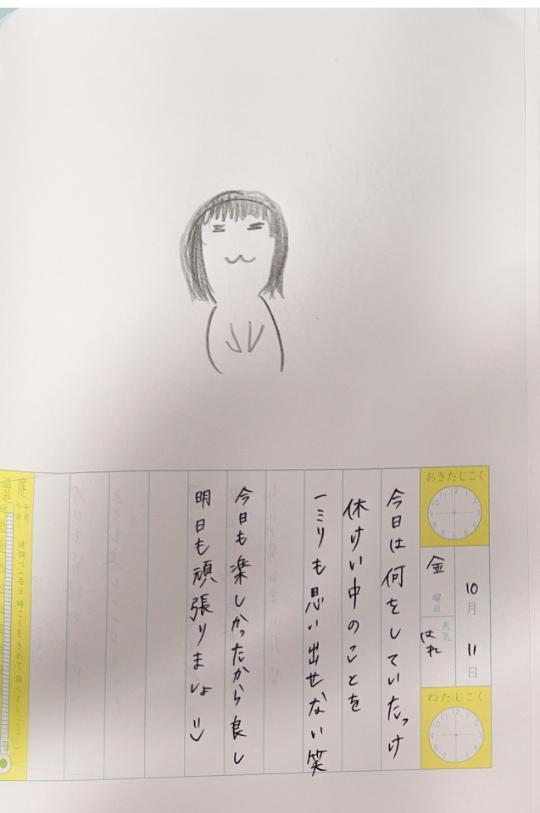 おきたじこく
10月 11日
金曜日
天気 はれ
ねたじこく
今日は何をしていたっけ
休けい中のことを
一ミリも思い出せない笑
今日も楽しかったから良し
明日も頑張りましょ =)
温度